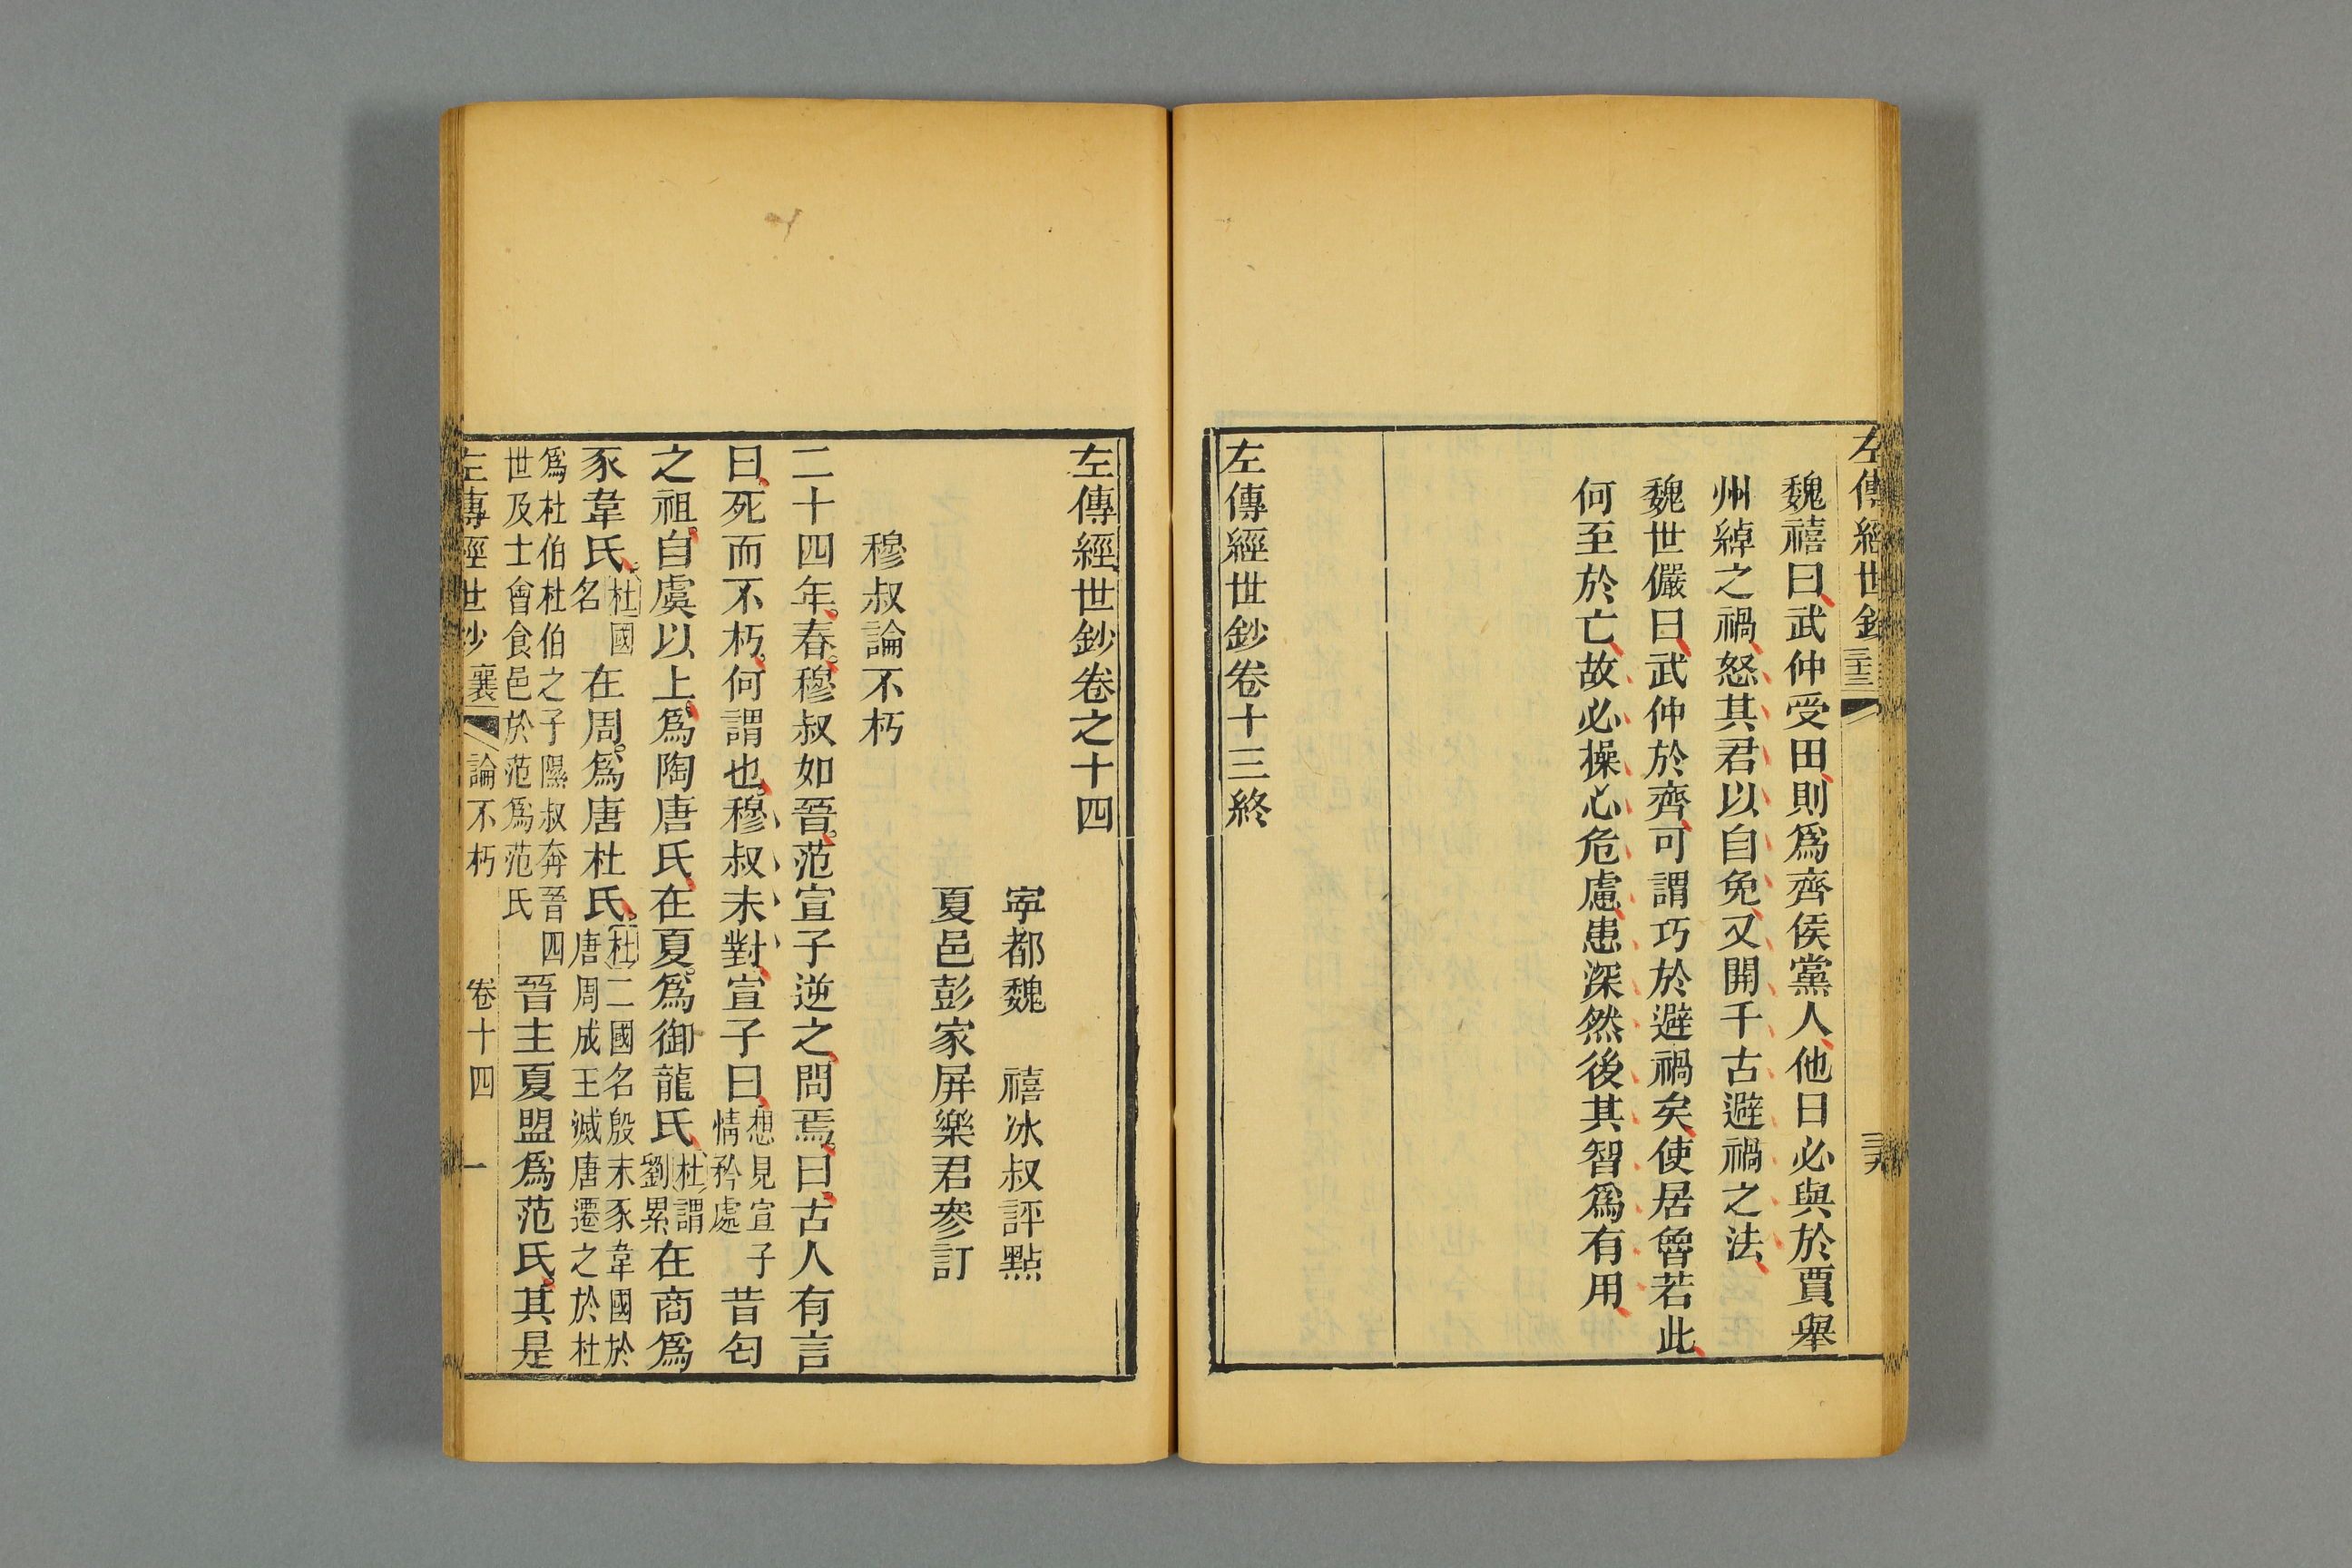 左傳經世鈔
魏禧曰武仲受田則爲齊侯黨人他日必與於賈舉
州綽之禍怒其君以自免又開千古避禍之法
魏世儼曰武仲於齊可謂巧於避禍矣使居魯若此
何至於亡故必操心危慮患深然後其智爲有用
左傳經世鈔卷十三終
左傳經世鈔卷之十四
寧都魏　禧冰叔評點
夏邑彭家屏樂君參訂
穆叔論不朽
二十四年春穆叔如晉范宣子逆之問焉曰古人有言
曰死而不朽何謂也穆叔未對宣子曰想見宣子情矜處昔匄
之祖自虞以上爲陶唐氏在夏爲御龍氏杜謂劉累在商爲
豕韋氏杜國名在周爲唐杜氏杜二國名殷末豕韋國於唐周成王滅唐遷之於杜
爲杜伯杜伯之子隰叔奔晉四世及士會食邑於范爲范氏晉主夏盟爲范氏其是
左傳經世鈔 襄 論不朽 卷十四 一